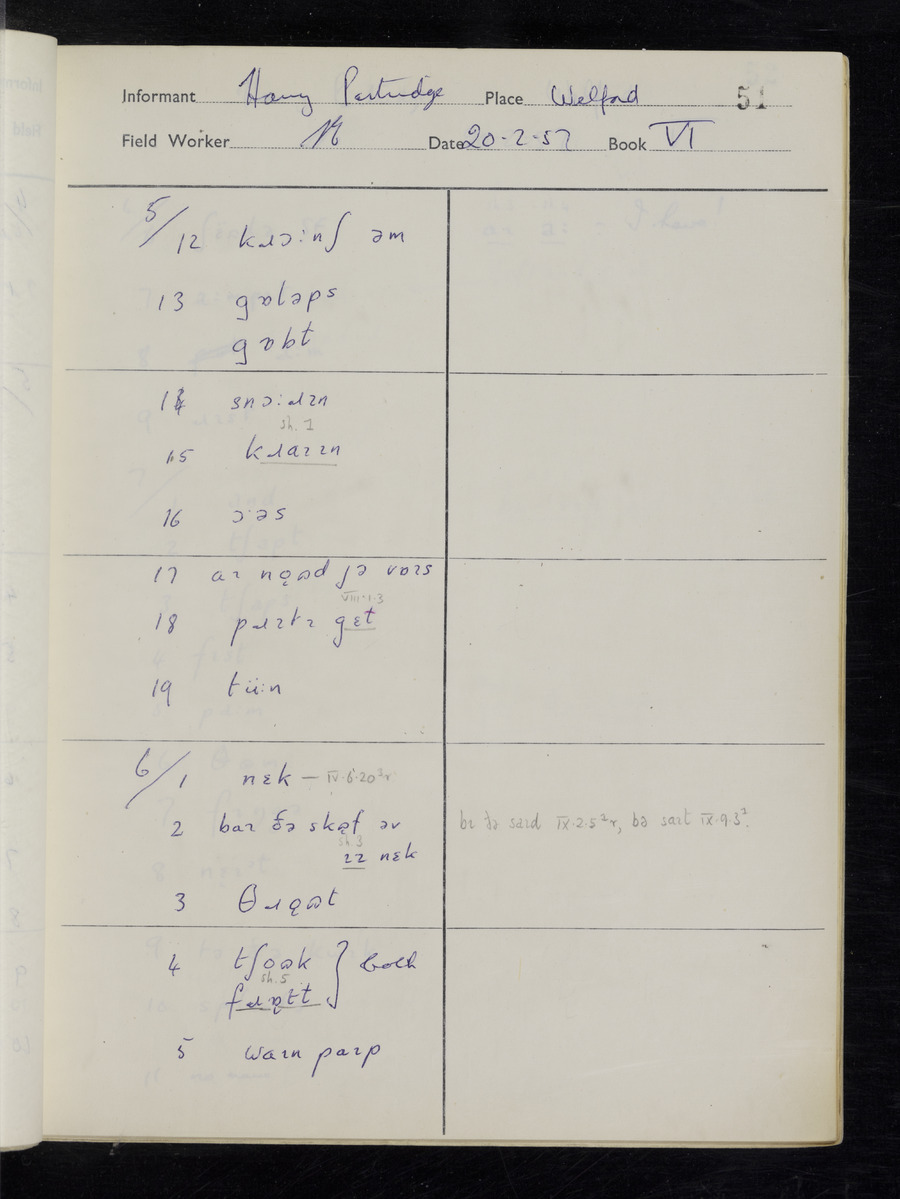 Informant Harry Partridge Place Welford 51
Field Worker Date 20-2-57 Book VI
5/12 kɹɔ:nʃ əm
13 gɒləps
gɒbt
14 snɔ:ɹɪn
sh. 1
15 kɹaɪɪn
16 ɔ·əs
17 aɪ ʃə vɒɪs
VIII·1·3
18 pɹɪtɪ gɛt
19 tü:n
6/1 nɛk — IV·6·20²r
2 baɪ ðə skɤf əv bɪ ðə saɪd IX·2·5²r, bə saɪt IX·9·3².
sh.3
ɪz nɛk
3 θɹo̜ʊt
4 tʃoʊk } both
sh. 5
5 waɪn paɪp